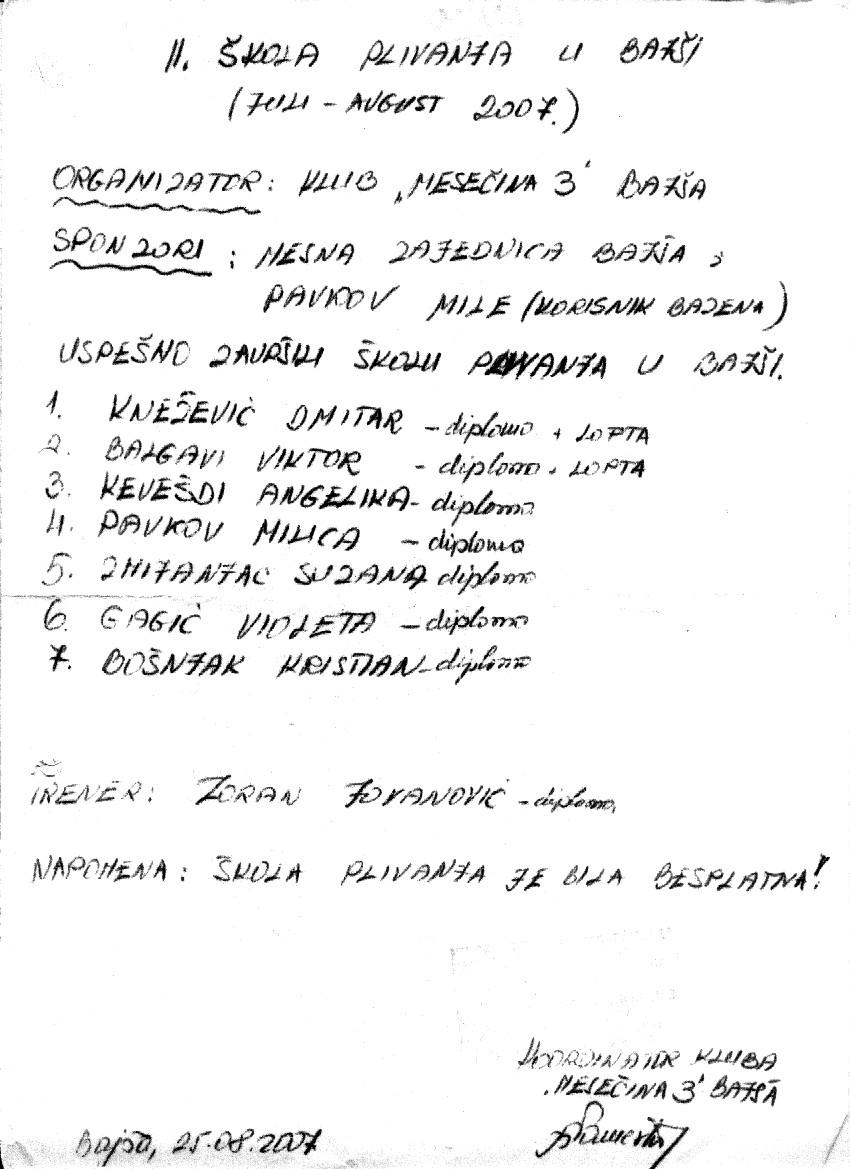 II. ŠKOLA PLIVANJA U BAJŠI
(JULI - AVGUST 2007.)
ORGANIZATOR: KLUB „MESEČINA 3" BAJŠA
SPONZORI: MESNA ZAJEDNICA BAJŠA i
PAVKOV MILE (KORISNIK BAZENA)
USPEŠNO ZAVRŠILI ŠKOLU PLIVANJA U BAJŠI.
1. KNEŽEVIĆ DMITAR - diploma + LOPTA
2. BALGAVI VIKTOR - diploma + LOPTA
3. KEVEŠDI ANGELIKA - diploma
4. PAVKOV MILICA - diploma
5. ZMIJANJAC SUZANA diploma
6. GAGIĆ VIOLETA - diploma
7. BOŠNJAK KRISTIAN - diploma
TRENER: ZORAN JOVANOVIĆ - diploma
NAPOMENA: ŠKOLA PLIVANJA JE BILA BESPLATNA!
KOORDINATOR KLUBA
„MESEČINA 3" BAJŠA
Bajša, 25.08.2007